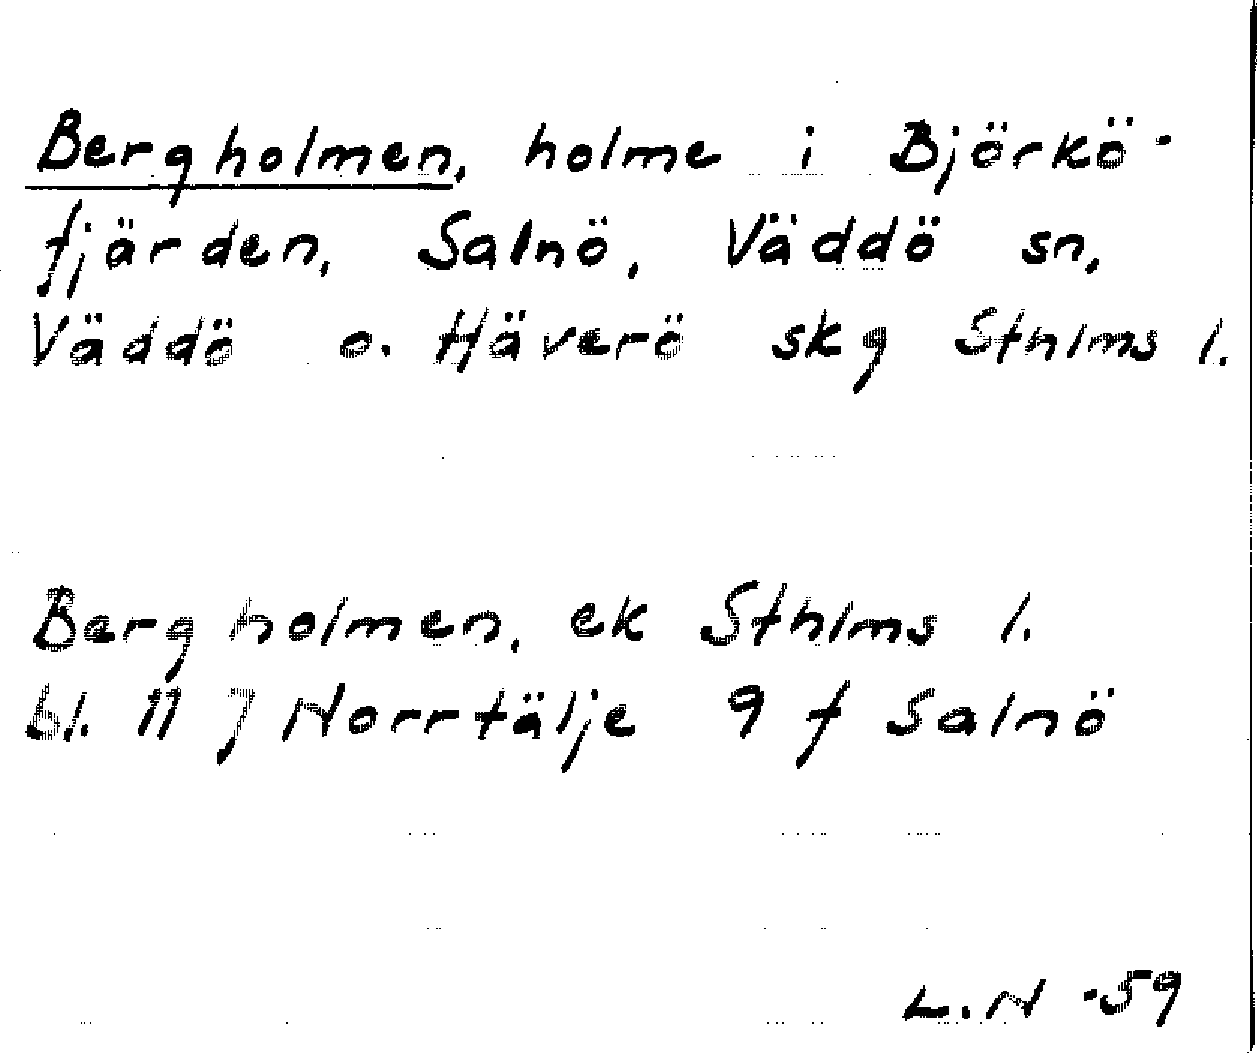 Bergholmen, holme i Björkö-
fjärden, Salnö, Väddö sn,
Väddö o. Häverö skg Sthlms l.
Bergholmen, ek Sthlms l.
bl. 11 J Norrtälje 9 f Salnö
L.N -59